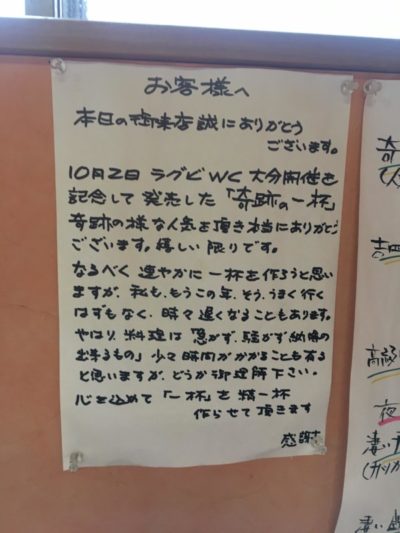 お客様へ
本日の御来店誠にありがとう
ございます。
10月2日 ラグビWC 大分開催を
記念して 発売した「奇跡の一杯」
奇跡の様な人気を頂き本当にありがとう
ございます。嬉しい限りです。
なるべく 速やかに 一杯を作ろうと思い
ますが、私も、もうこの年、そう、うまく行く
はずもなく、時々遅くなることもあります。
やはり、料理は「急がず、騒がず納得の
出来るもの」少々時間がかかることも有る
と思いますが、どうか御理解下さい。
心を込めて「一杯」を精一杯
作らせて頂きます
感謝
奇
高級
夜
凄い
凄い